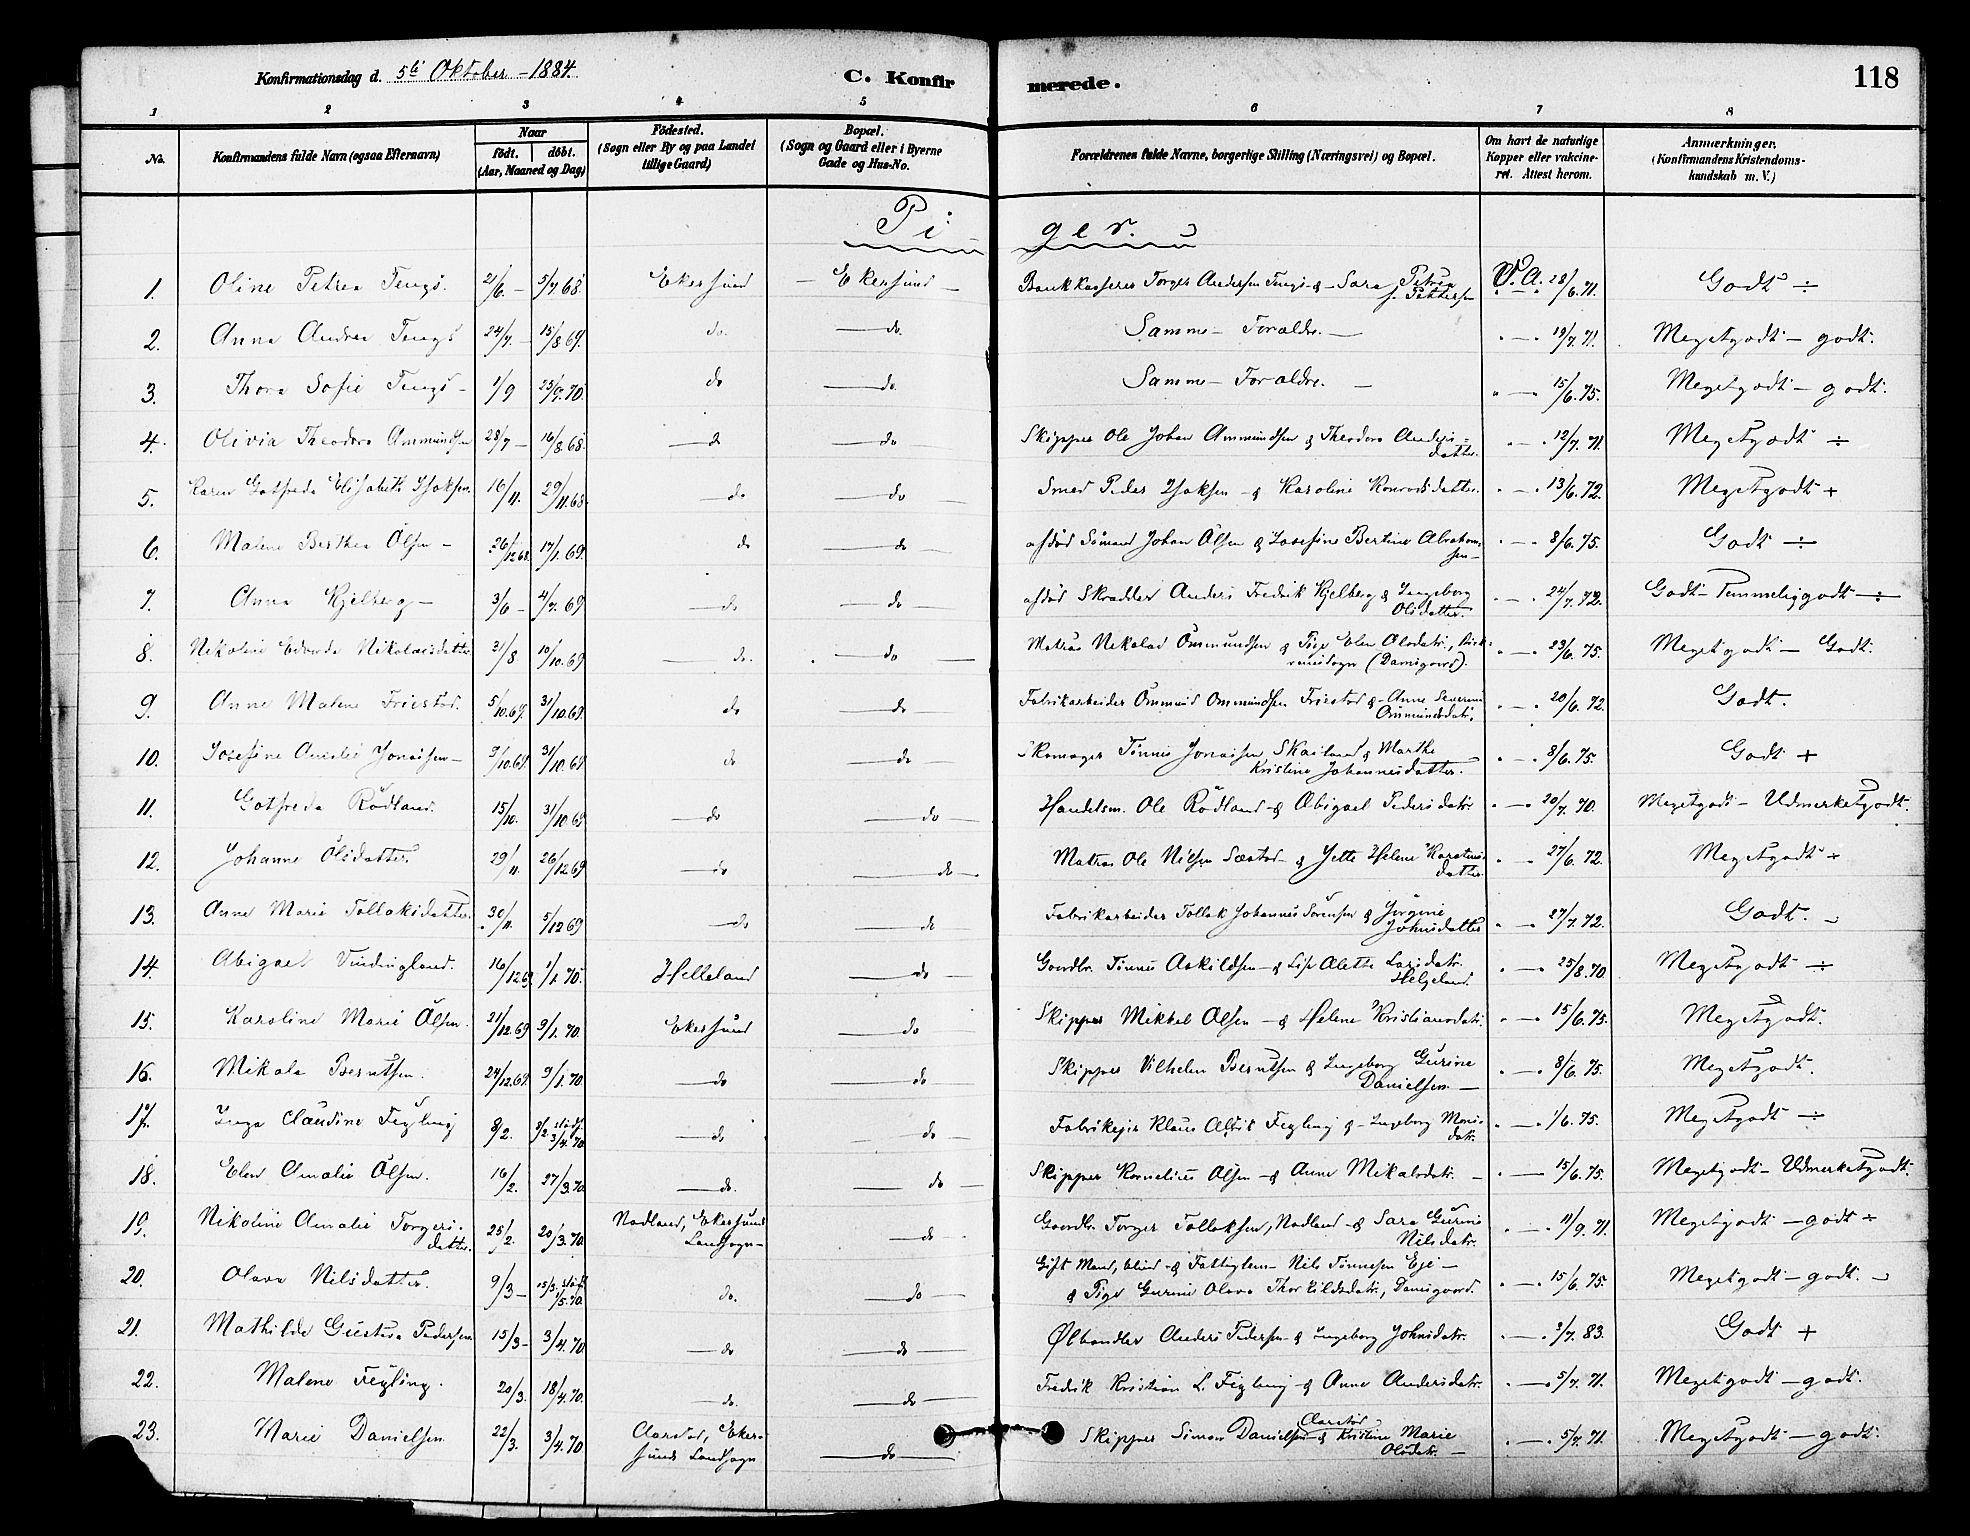 Konfirmationsdag d. 5te Oktober - 1884.
C. Konfirmerede.
118
1 2 3 4 5 6 7 8
No.
Konfirmandens fulde Navn (ogsaa Efternavn)
Naar
født. døbt.
(Aar, Maaned og Dag)
Fødested.
(Sogn eller By og paa Landet
tillige Gaard)
Bopæl.
(Sogn og Gaard eller i Byerne
Gade og Hus-No.
Forældrenes fulde Navne, borgerlige Stilling (Næringsvei) og Bopæl.
Om havt de naturlige
Kopper eller vakcine-
ret. Attest herom.
Anmærkninger,
(Konfirmandens Kristendoms-
kundskab m. V.)
Piger.
1. Oline Petrea Tengs. 21/6 - 5/7.68. Ekersund - Ekersund - Bankkasserer Torger Andersen Tengs & Sara Petrea f. Pettersen V. A. 28/6.71. Godt ÷
2. Anna Andrea Tengs 24/7. - 15/8 69. do. - do. Samme - Forældre. - " - " 19/7.71. Megetgodt - godt.
3. Thora Sofie Tengs - 1/9 23/9.70. do - do Samme - Forældre. - " - " 15/6.75. Megetgodt - godt.
4. Olivia Theodora Ammundsen 28/7 - 16/8.68. - d - do Skipper Ole Johan Ammundsen & Theodora Anders-
datter. " - " 12/7.71. Megetgodt ÷
5. Karen Gotfreda Elisabeth Isaksen. 16/11. 29/11.68. - do - do - Smed Peder Isaksen - & Karoline Konradsdatter. " - " 13/6.72. Megetgodt +
6. Malene Berthea Olsen - 26/12 68. 17/1.69. do - do - afdød Sømand Johan Olsen & Josefine Bertine Abraham-
sen - " - " 8/6.75. Godt ÷
7. Anna Kjelberg - 3/6 - 4/7.69 - do - do - afdød Skrædder Anders Fredrik Kjelberg & Ingeborg
Olsdatter. " - " 24/7.72. Godt - Temmeliggodt ÷
8. Nikoline Edvarda Nikolaisdatter 31/8 10/10.69 - do. - do - Matros Nikolai Ommundsen & Pige Elen Olsdatr.,
(Damsgaard). " - " 23/6.75. Megetgodt - Godt.
9. Anne Malene Friestad. 5/10.69. 31/10.69. do - do - Fabrikarbeider Ommund Ommundsen Friestad & Anne Severine
Ommundsdatr. " - " 20/6.72. Godt.
10. Josefine Amalie Jonassen - 9/10.69. 31/10.69. do - do - Skomager Tønnes Jonassen Skailand & Marthe
Kristine Johannesdatter. " - " 8/6.75. Godt +
11. Gotfreda Rødland. 15/10. 31/10.69 - do - do - Handelsm. Ole Rødland & Abigael Pedersdatr. " - " 20/7.70. Megetgodt - Udmerketgodt.
12. Johanne Olsdatter. 29/11. 26/12 69 - do - do - Matros Ole Nilsen Sæstad & Jette Helene Karstens-
datter " - " 27/6.72. Megetgodt +
13. Anne Marie Tollaksdatter. 30/11. 5/12 69 - do - do Fabrikarbeider Tollak Johannes Sørensen & Jørgine
Johnsdatter " - " 27/7.72. Godt. -
14. Abigael Vindingland. 16/12 69. 1/1.70. Helleland - do - Gaardbr. Tønnes Askildsen & Lise Alette Larsdatr.
Helgeland. " - " 25/8.70 Megetgodt ÷
15. Karoline Marie Olsen. 21/12.69 9/1.70. Ekersund - do Skipper Mikkel Olsen - & Helene Kristiansdatr. " - " 15/6.75. Megetgodt.
16. Mikala Berntsen. 24/12.69. 9/1.70. - do - do - Skipper Vilhelm Berntsen & Ingeborg Gurine
Danielsen - " - " 8/6.75. Megetgodt.
17. Inga Claudine Feyling 8/2. 3/4.70. - do - do - Fabrikejer Klaus Feyling & Ingeborg Mons-
datr. " - " 1/6.75. Megetgodt ÷
18. Elen Amalie Olsen. 16/2. 27/3.70. - do. - do - Skipper Kornelius Olsen - & Anne Mikalsdatr. - " - 15/6.75. Megetgodt - Udmerketgodt.
19. Nikoline Amalie Torgers-
datter. 25/2. 20/3.70. Nodland, Ekersunds
Landsogn - - do - Gaardbr. Torger Tollaksen, Nodland & Sara Gurine
Nilsdatr. " - " 11/9.71. Megetgodt - godt ÷
20. Olava Nilsdatter. 9/3 - 1/5.70. do. - do - Gift Mand, blind & Fattiglem - Nils Tønnesen Eje -
& Pige Gurine Olava Thorkildsdatr., Damsgaard. " - " 15/6.75. Megetgodt - godt. -
21. Mathilde Gustava Pedersen 15/3 - 3/4.70 - do - do - Ølhandler Anders Pedersen & Ingeborg Johnsdatr. " - " 3/7.83. Godt +
22. Malene Feyling. 20/3. 18/4.70. - do. - do - Fredrik Kristian L. Feyling & Anne Andersdatr. " - " 5/7.71. Megetgodt - godt.
23. Marie Danielsen 22/3. 3/4.70 Aarstad, Eker-
sunds Landsogn - do - Skipper Simon Danielsen Aarstad & Kristine Marie
Olsdatr. - " - " 5/7.71. Megetgodt - godt.